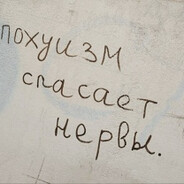 похуизм
спасает
нервы.